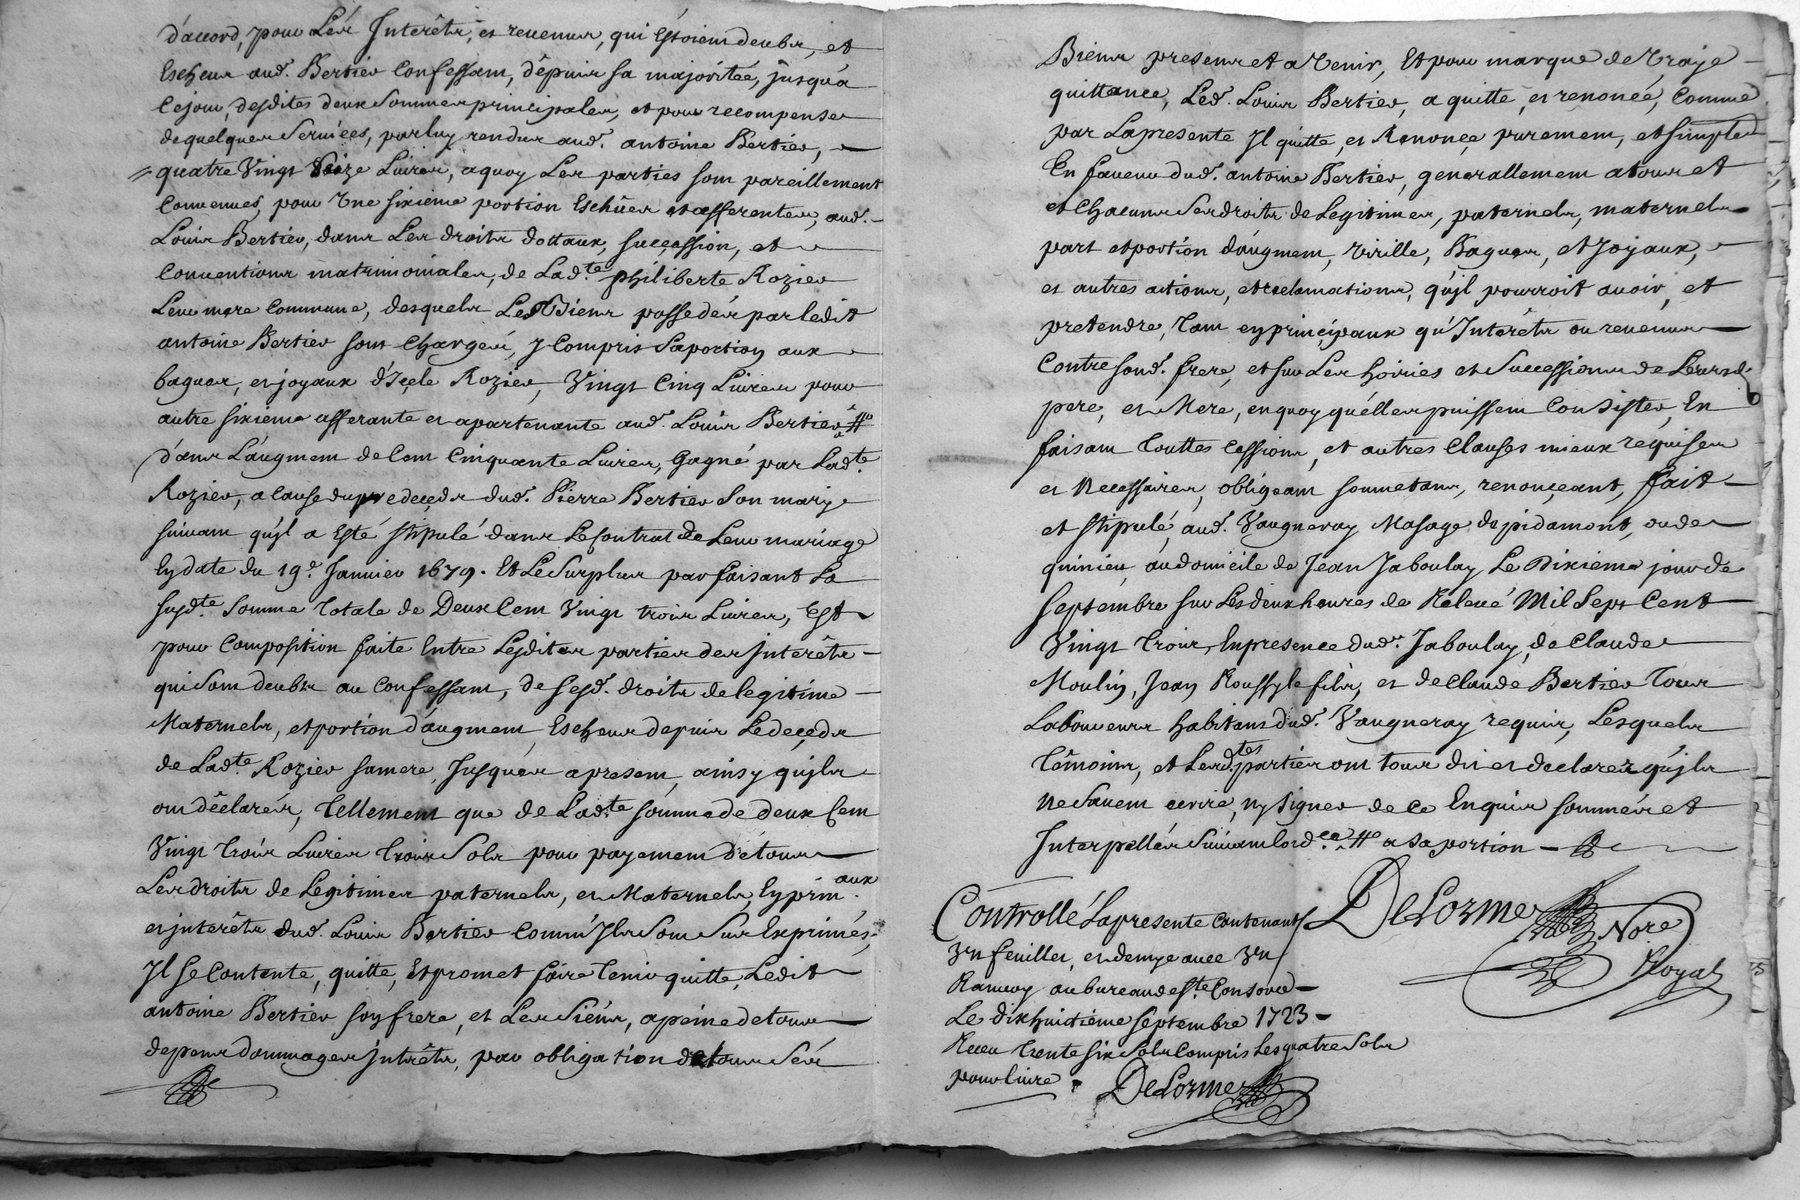 d'accord, pour Les Interêts, et revenus, qui Estoient deubs, et
Escheus aud. Bertier Confessant, dépuis sa majoritée, jusqu'a
Cejour, desdites deux Sommes principales, et pour recompense
de quelques Services, par luy rendus aud. antoine Bertier,
quatre Vingt Seize Livres, a quoy Les parties sont pareillement
Convenues, pour Une sixieme portion Eschües et afferentes, aud.
Louis Bertier, dans Les droits dottaux, succession, et
Conventions matrimoniales, de Ladte philiberte Rozier
Leur mere Commune, desquels Lesd Biens possedés par ledit
antoine Bertier sont Chargés, y Compris Sa portion aux
bagues, et joyaux d'Icele Rozier, Vingt Cinq Livres pour
autre sixieme afferante et apartenante aud. Louis Bertier #
dans L'augment de Cent Cinquante Livres, Gagné par Ladte
Rozier, a Cause du predeceds dud. Pierre Bertier Son mary
suivant qu'jl a Esté stipulé dans Le Contrat de Leur mariage
En date du 19e Janvier 1679. Et Le Surplus parfaisant La
susdte Somme totale de Deux Cent Vingt trois Livres, Est
pour Composition faite Entre Lesdites parties des jnterêts
qui sont deubs au Confessant, de sesd. droits de legitime
Maternels, et portion d'augment, Escheus depuis Le deceds
de Ladte Rozier sa mere, Jusques a present, ainsy qu'jls
ont déclarés, tellement que de Ladte somme de deux Cent
Vingt trois Livres trois Sols pour payement de tous
Les droits de Legitimes paternels, et Maternels, En prin.aux
et jnterêts dud. Louis Bertier Comm'Jls Sont Sus Exprimés,
Jl se Contente, quitte, Et promet faire tenir quitte, Ledit
antoine Bertier son frere, et Les Siens, a peine de tous
depens dommages jnterêts, par obligation de tous Ses
Biens presens et a Venir, Et pour marque de Vraye
quittance, Led. Louis Bertier, a quitté, et renoncé, Comme
par La presente Jl quitte, et Renonce purement, et simplet
En faveur dud. antoine Bertier, generallement a tous et
et Chacuns Ses droits de Legitimes, paternels, maternels
part et portion d'augment, Virille, Bagues, et Joyaux,
et autres actions, et reclamations, qu'jl pourroit avoir, et
pretendre, tant en principaux qu'Interêts ou revenus
Contre sond. frere, et sur Les hoiries et Successions de Leursd.
pere, et Mere, en quoy qu'elles puissent Consister, En
faisant touttes Cessions, et autres Clauses mieux requises
et Necessaires, obligeant soumetans, renonçeant, fait
et stipulé, aud. Vaugneray Masage de pidamont, ou de
quinieu, au domicile de Jean Jaboulay Le Dixieme jour de
Septembre sur Les deux heures de Relevé Mil Sept Cent
Vingt trois, En presence dud. Jaboulay, de Claude
Moulin, Jean Roussy le fils, et de Claude Bertier tous
Laboureurs habitans dud. Vaugneray requis, Lesquels
têmoins, et Lesd.tes parties ont tous dit et declarez qu'jls
Ne Savent ecrire, ny Signer de ce Enquis sommés et
Interpellés Suivant lord.ce # a sa portion
DeLorme Nore
Royal
Controllé La presente Contenant
Un feuillet, et demye avec Un
Ranvoy au bureau de Ste Consorce
Le dixhuitiéme Septembre 1723
Receu trente Six Sols Compris Les quatre Sols
pour livre. DeLorme